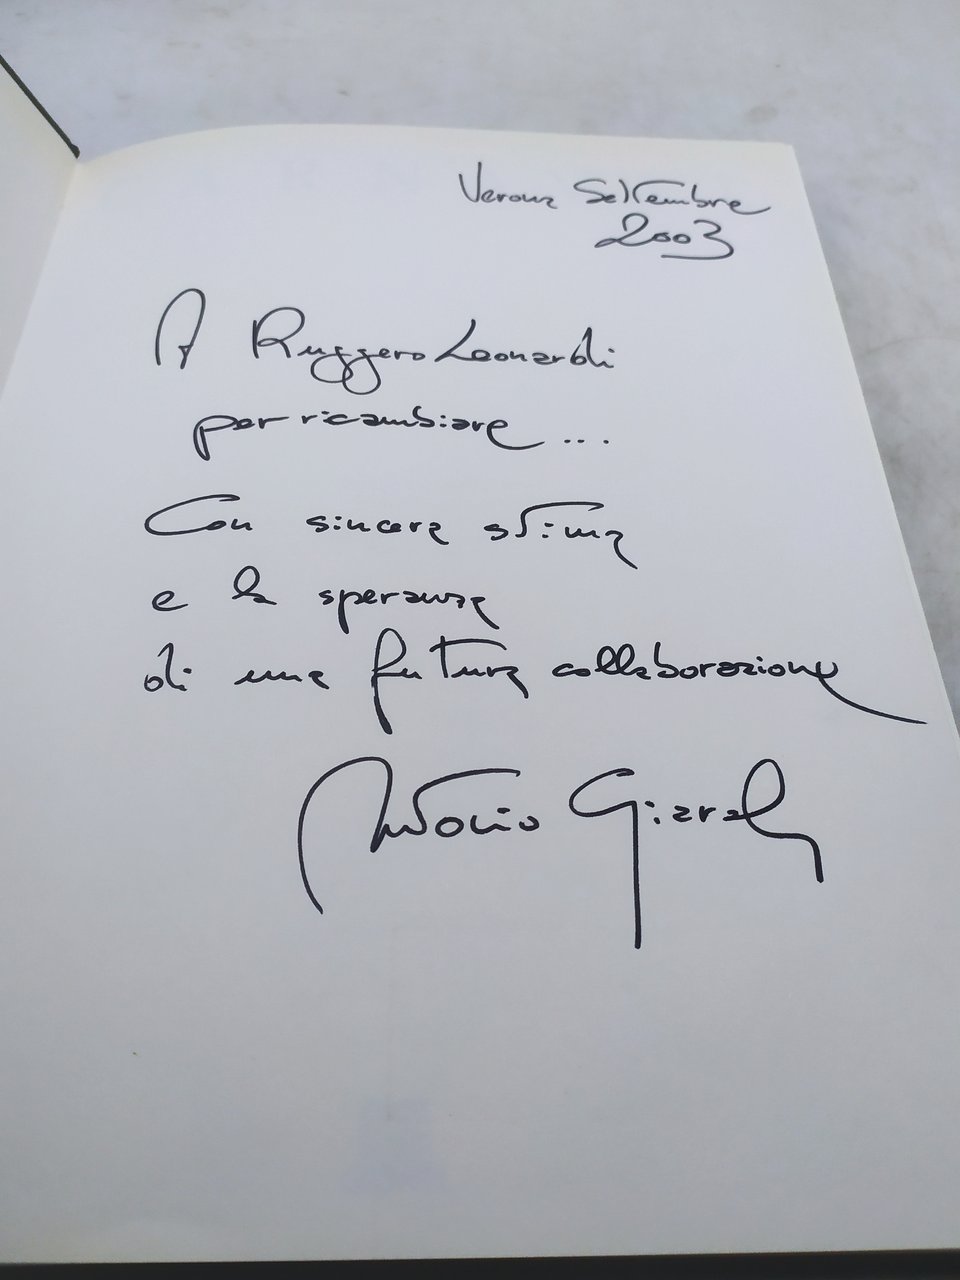 Verona Settembre
2003
A Ruggero Leonardi
per ricambiare ...
Con sincera stima
e la speranza
di una futura collaborazione
Antonio Giarola